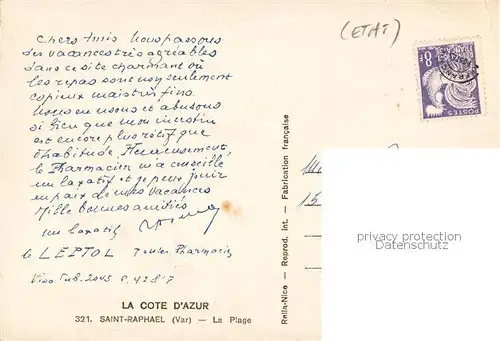 (ETAT)
Chers Amis Nous passons
des vacances très agréables
dans ce site charmant où
les repas sont non seulement
copieux mais très fins.
Nous en usons et abusons
si bien que mon intestin
est encore plus rétif que
d'habitude. Heureusement,
le Pharmacien m'a conseillé
un laxatif et je peux jouir
en paix de mes vacances
Mille bonnes amitiés
un laxatif
le LEPTOL Toutes Pharmacies
Visa Pub. 2045 P. 4287
LA COTE D'AZUR
321. SAINT-RAPHAEL (Var) — La Plage
Rella-Nice — Reprod. Int. — Fabrication française
8F
POSTES
FRANÇAISE
13
privacy protection
Datenschutz